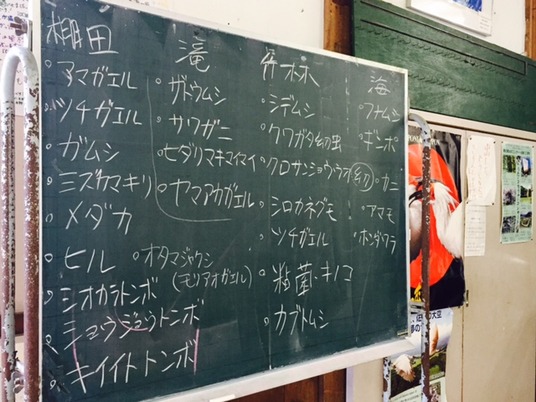 棚田
・アマガエル
・ツチガエル
・ガムシ
・ミズカマキリ
・メダカ
・ヒル
・オタマジャクシ
(モリアオガエル)
・シオカラトンボ
・ショウジョウトンボ
・キイイトトンボ
滝
・ザトウムシ
・サワガニ
・ヒダリマキマイマイ
・ヤマアカガエル
竹林
・シデムシ
・クワガタ幼虫
・クロサンショウウオ(幼)
・シロカネグモ
・ツチガエル
・粘菌・キノコ
・カブトムシ
海
・フナムシ
・ギンポ
・カニ
・アマモ
・ホンダワラ